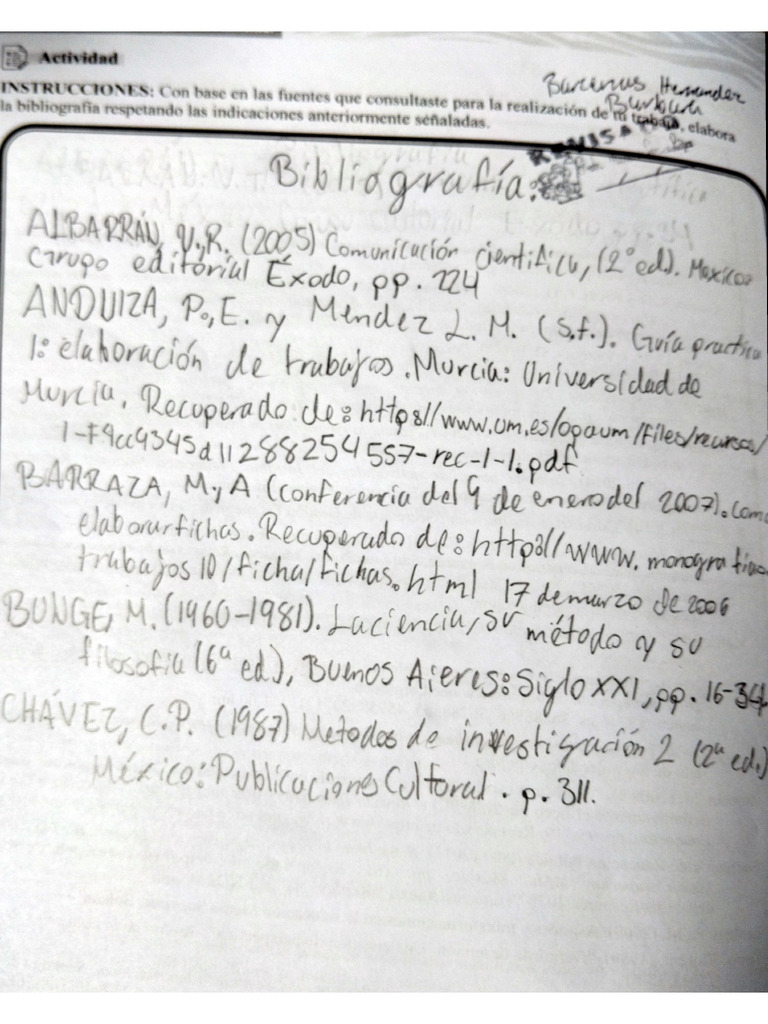 Actividad
Barcenas Hernandez
Barbara
INSTRUCCIONES: Con base en las fuentes que consultaste para la realización de tu trabajo, elabora
la bibliografía respetando las indicaciones anteriormente señaladas.
REVISADO
Bibliografía:
ALBARRÁN, V.,R. (2005) Comunicación científica, (2° ed.). Mexico:
Grupo editorial Éxodo, pp. 224
ANDUIZA, P.,E. y Mendez L. M. (s.f.). Guía practica
1: elaboración de trabajos. Murcia: Universidad de
Murcia. Recuperado de: http://www.um.es/ogaum/files/recursos/
1-F9cc9345d11288254557-rec-1-1.pdf
BARRAZA, M., A (conferencia del 9 de enero del 2007). como
elaborar fichas. Recuperado de: http://www.monografias.
trabajos10/ficha/fichas.html 17 de marzo de 2006
BUNGE, M. (1960-1981). La ciencia, su método y su
filosofía (6ª ed.), Buenos Aieres: Siglo XXI, pp. 16-34
CHÁVEZ, C.P. (1987) Metodos de investigación 2 (2ª ed.)
México: Publicaciones Cultural. p. 311.